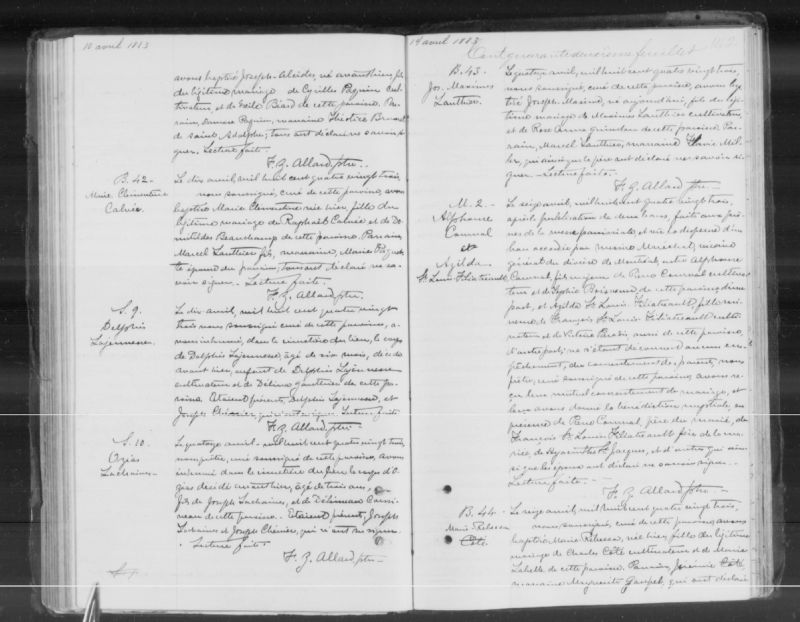 10 avril 1883
avons baptisé Joseph-Alcide, né avant hier, fils
du légitime mariage de Cyrille Paquin cul-
tivateur, et de Exilé Biard de cette paroisse. Par-
rain, Paquin, marraine
de Saint Adolphe; tous ont déclaré ne savoir si-
gner. Lecture faite.
F. Z. Allard ptre
B. 42-
Marie Clementine
Calvée.
Le dix avril, mil huit cent quatre vingt trois,
nous soussigné, curé de cette paroisse, avons
baptisé Marie Clementine née hier, fille du
légitime mariage de Raphaël Calvée et de Do-
mitildes Beauchamp de cette paroisse. Parrain,
Marcel Lauthier fils, marraine, Marie
épouse du parrain, tous ont déclaré ne sa-
voir signer. Lecture faite.
F. Z. Allard ptre
S. 9.
Delphis
Lajeunesse.
Le dix avril, mil huit cent quatre vingt
trois nous soussigné curé de cette paroisse, a-
vons inhumé, dans le cimetière du lieu, le corps
de Delphis Lajeunesse, âgé de six mois, décédé
avant hier, enfant de Delphis Lajeunesse
cultivateur et de Délima Gauthier de cette pa-
roisse. Etaient présents, Delphis Lajeunesse, et
Joseph Chénier, qui n'ont su signer. Lecture faite
F. Z. Allard ptre
S. 10.
Ozias
Lachaine.
Le quatorze avril mil huit cent quatre vingt trois,
nous prêtre, curé soussigné de cette paroisse, avons
inhumé dans le cimetière du lieu le corps d'O-
zias décédé avant hier, âgé de trois ans,
fils de Joseph Lachaine, et de Délimea
de cette paroisse. Etaient présents, Joseph
Lachaine et Joseph Chénier, qui n'ont su signer.
Lecture faite.
F. Z. Allard ptre
14 avril 1883
Cent quarante deuxième feuillet
B. 43.
Jos. Maxime
Lauthier.
Le quatorze avril, mil huit cent quatre vingt trois,
nous soussigné, curé de cette paroisse, avons bap-
tisé Joseph Maxime, né aujourd'hui, fils du légi-
time mariage de Maximes Lauthier cultivateur,
et de Rose Anna Guindon de cette paroisse. Par-
rain, Marcel Lauthier, marraine Flavie
qui ainsi que le père ont déclaré ne savoir si-
gner. Lecture faite.
F. Z. Allard ptre
M. 2.
Alphonse
Conval
et
Azilda
St. Louis Filiatreault
Le seize avril, mil huit cent quatre vingt trois,
après la publication de deux bans, faite aux prô-
nes de la messe paroissiale et vu la dispense d'un
ban accordée par messire Maréchal, vicaire
général du diocèse de Montréal, entre Alphonse
Conval, fils majeur de Piere Conval cultiva-
teur et de Sophie Boisvenu de cette paroisse d'une
part, et Azilda St. Louis Filiatreault, fille mi-
neure de François St. Louis Filiatreault culti-
vateur et de Victoria aussi de cette paroisse
d'autre part; ne s'étant découvert aucun em-
pêchement, du consentement des parents, nous
prêtre, curé soussigné de cette paroisse, avons re-
çu leur mutuel consentement de mariage, et
leur avons donné la bénédiction nuptiale en
présence de Piere Conval, père du marié, de
François St. Louis Filiatreault père de la ma-
riée, de Hyacinthe St. Jacques, et d'autres qui ain-
si que les époux ont déclaré ne savoir signer.
Lecture faite.
F. Z. Allard ptre
B. 44.
Marie Rebecca
Côté.
Le seize avril, mil huit cent quatre vingt trois,
nous soussigné, curé de cette paroisse, avons
baptisé Marie Rebecca, née hier, fille du légitime
mariage de Charles Côté cultivateur et de Marie
Labelle de cette paroisse. Parrain, Jérémie Côté,
marraine Marguerite qui ont déclaré